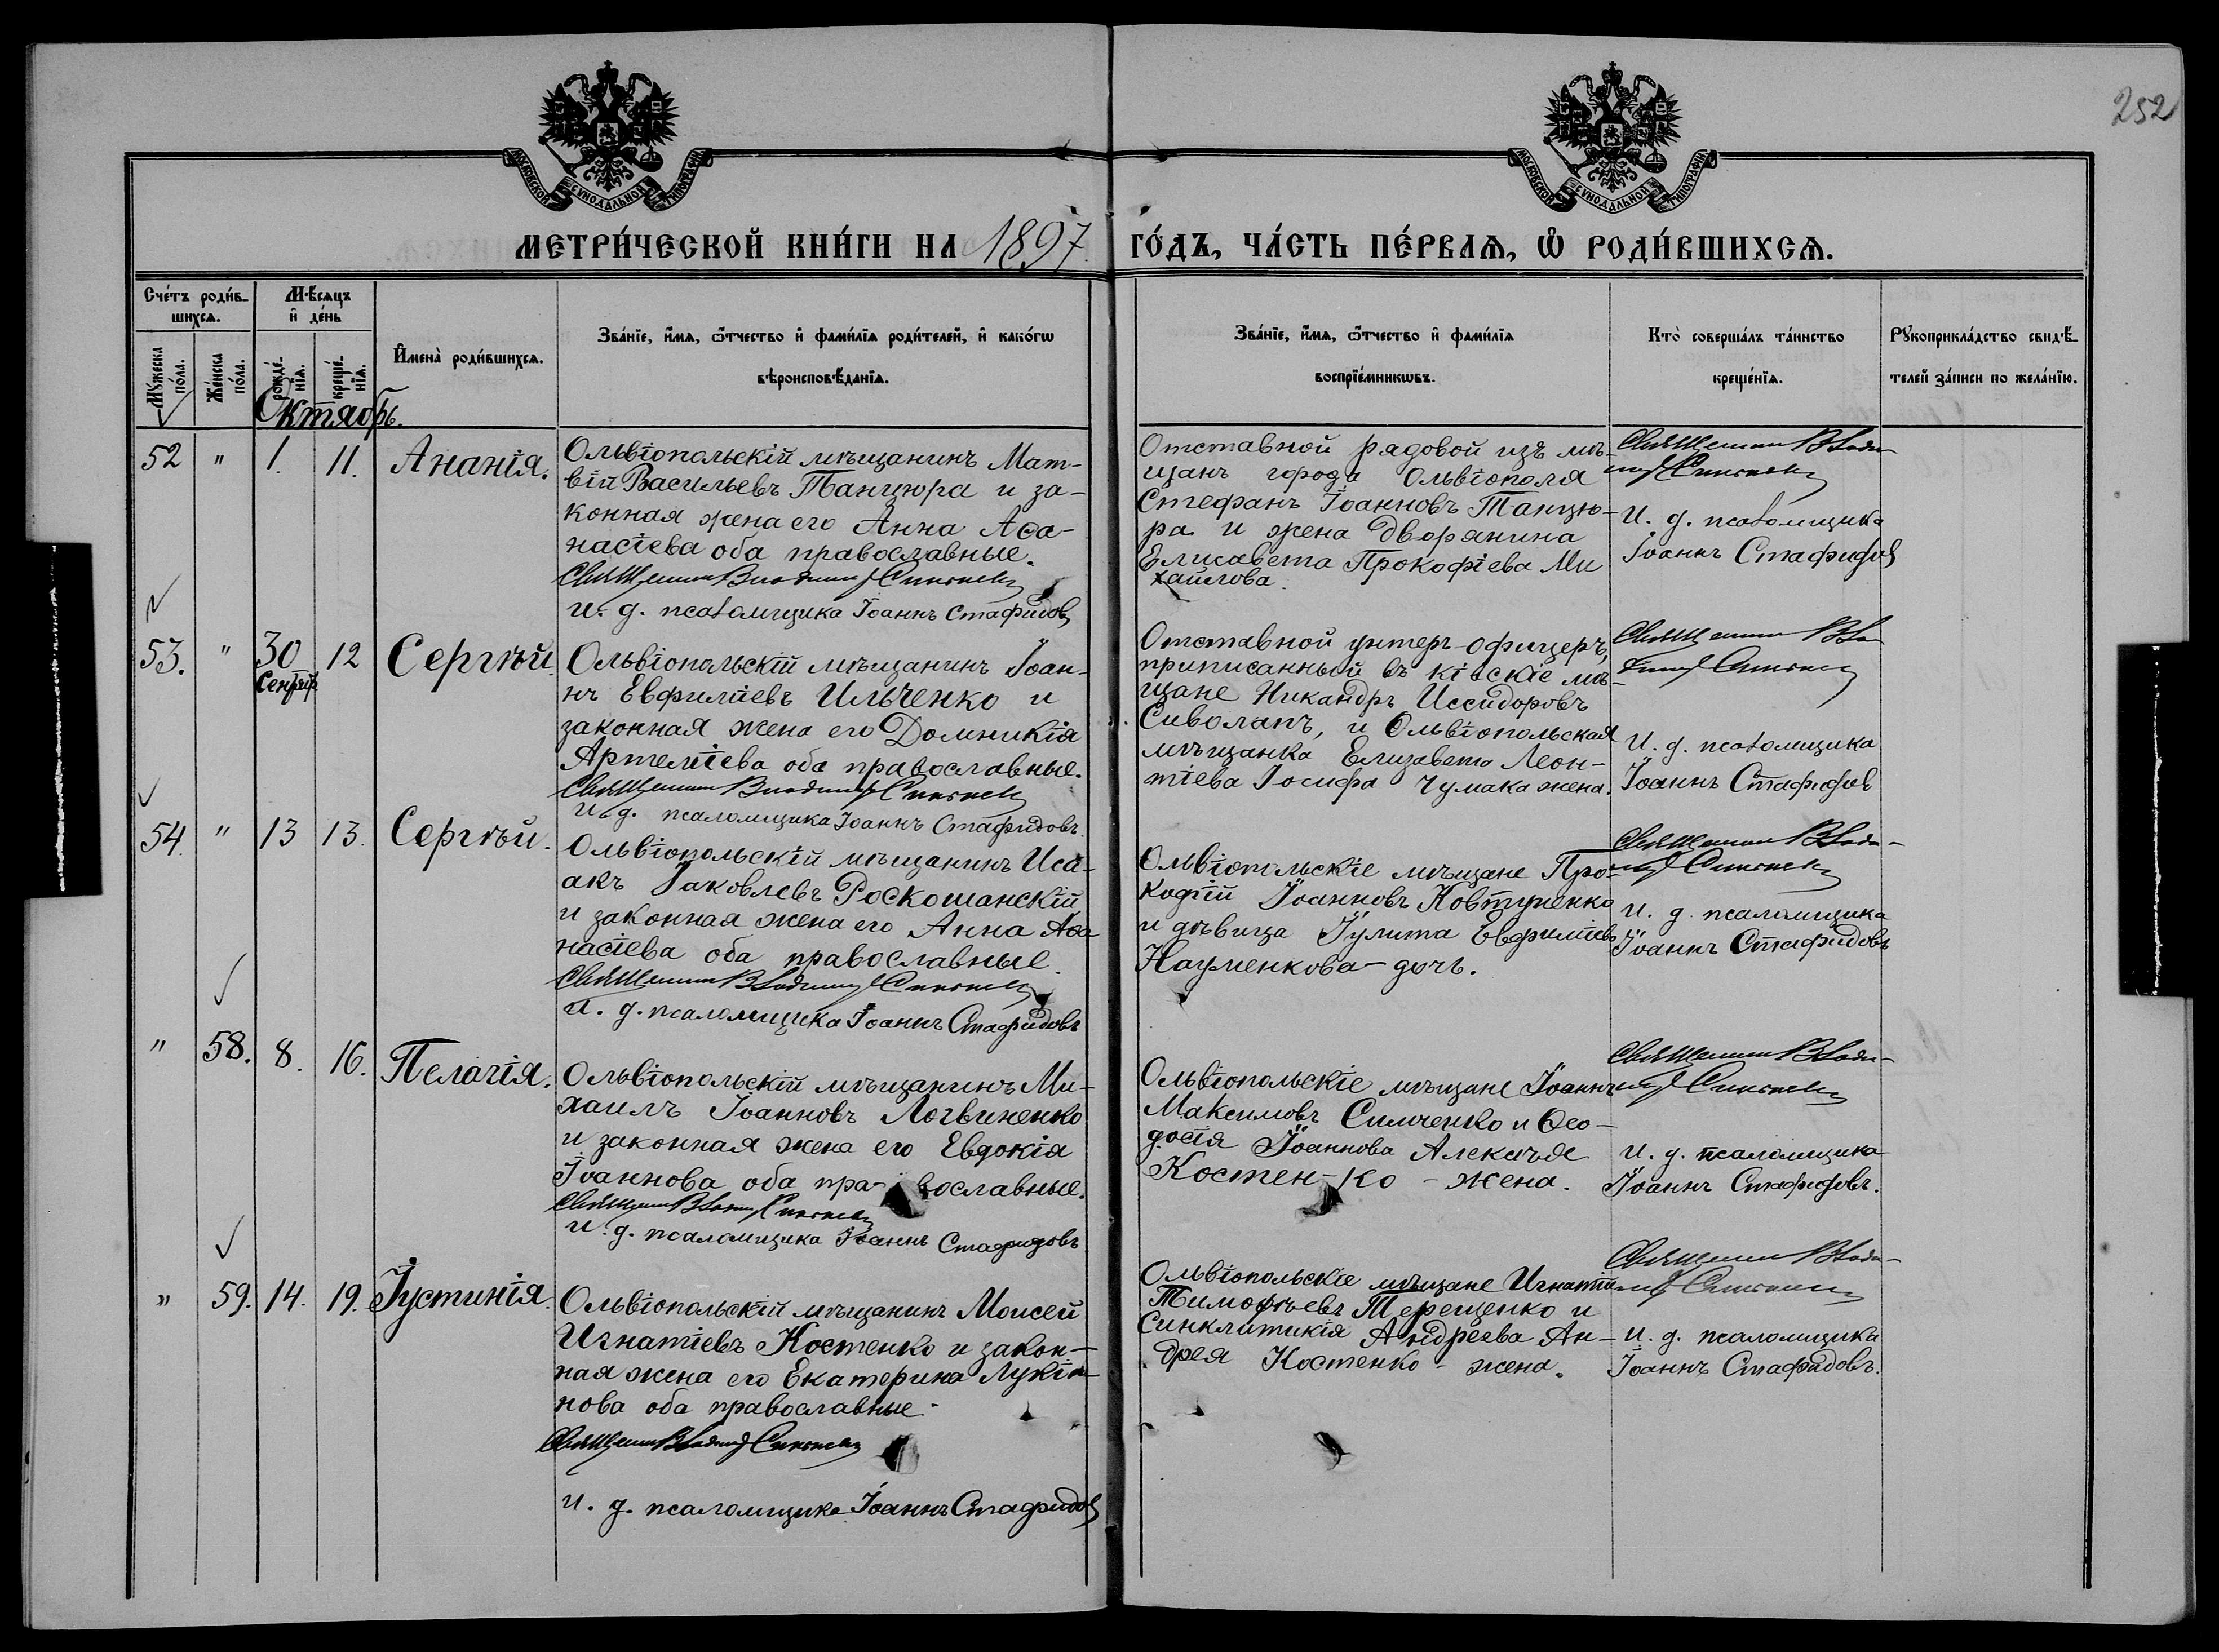 252
МОСКОВСКОЙ СѴНОДАЛЬНОЙ ТИПОГРАФІИ
МОСКОВСКОЙ СѴНОДАЛЬНОЙ ТИПОГРАФІИ
МЕТРИ́ЧЕСКОЙ КНИ́ГИ НА 1897 ГО́ДЪ, ЧА́СТЬ ПЕ́РВАѦ, Ѿ РОДИ́ВШИХСѦ.
Сче́тъ роди́в-
шихсѧ.
Мѣ́сѧцъ
и҆ де́нь
Мꙋ́жеска
по́ла.
Же́нска
по́ла.
рожде́-
нїѧ.
креще́-
нїѧ.
И҆мена̀ роди́вшихсѧ.
Зва́нїе, и҆́мѧ, ѻ҆́тчество и҆ фами́лїѧ роди́телей, и҆ како́гѡ
вѣроисповѣ́данїѧ.
Зва́нїе, и҆́мѧ, ѻ҆́тчество и҆ фами́лїѧ
воспрїе́мникѡвъ.
Кто̀ соверша́лъ та́инство
креще́нїѧ.
Рꙋкоприкла́дство свидѣ́-
телей за́писи по жела́нїю.
Октябрь.
52 " 1. 11. Ананія.
Ольвіопольскій мѣщанинъ Мат-
вій Васильевъ Танцюра и за-
конная жена его Анна Аѳа-
насіева оба православные.
Священник Владимир
и. д. псаломщика Іоаннъ Стафидовъ
Отставной рядовой изъ мѣ-
щанъ города Ольвіополя
Стефанъ Іоанновъ Танцю-
ра и жена дворянина
Елисавета Прокофіева Ми
хайлова.
Священник Влади-
мир
И. д. псаломщика
Іоаннъ Стафидов
53. " 30 Сентяр 12 Сергѣй.
Ольвіопольскій мѣщанинъ Іоан-
нъ Евфиміевъ Ильченко и
законная жена его Домникія
Артеміева оба православные.
Священник Владимир
и д. псаломщика Іоаннъ Стафидовъ.
Отставной унтеръ-офицеръ,
приписанный въ кіевскіе мѣ-
щане Никандръ Иссидоровъ
Сиволапъ, и Ольвіопольская
мѣщанка Елизавета Леон-
тіева Іосифа Чумака жена.
Священник Вла
димир
И. д. псаломщика
Іоаннъ Стафидов
54. " 13 13. Сергѣй.
Ольвіопольскій мѣщанинъ Иса-
акъ Іаковлевъ Роскошанскій
и законная жена его Анна Аѳа
насіева оба православные.
Священник Владимир
и. д. псаломщика Іоаннъ Стафидовъ
Ольвіопольскіе мѣщане Про-
кофій Іоанновъ Ковтуненко
и дѣвица Іулита Евфиміев
Науменкова - дочь.
Священник Влади-
мир
И. д. псаломщика
Іоаннъ Стафидовъ
" 58. 8. 16. Пелагія.
Ольвіопольскій мѣщанинъ Ми-
хаилъ Іоанновъ Логвиненко
и законная жена его Евдокія
Іоаннова оба пра- вославные.
Священник Владимир
и. д. псаломщика Іоаннъ Стафидовъ
Ольвіопольскіе мѣщане Іоаннъ
Максимовъ Симченко и Ѳео-
досія Іоаннова Алексѣя
Костен-ко - жена.
Священник Влади-
мир
И. д. псаломщика
Іоаннъ Стафидовъ.
" 59. 14. 19. Іустинія.
Ольвіопольскій мѣщанинъ Моисей
Игнатіевъ Костенко и закон-
ная жена его Екатерина Лукіа-
нова оба православные.
Священник Владимир
и. д. псаломщика Іоаннъ Стафидов
Ольвіопольскіе мѣщане Игнатій
Тимофѣевъ Терещенко и
Синклитикія Андреева Ан-
дрея Костенко - жена.
Священник Влади-
мир
И. д. псаломщика
Іоаннъ Стафидовъ.